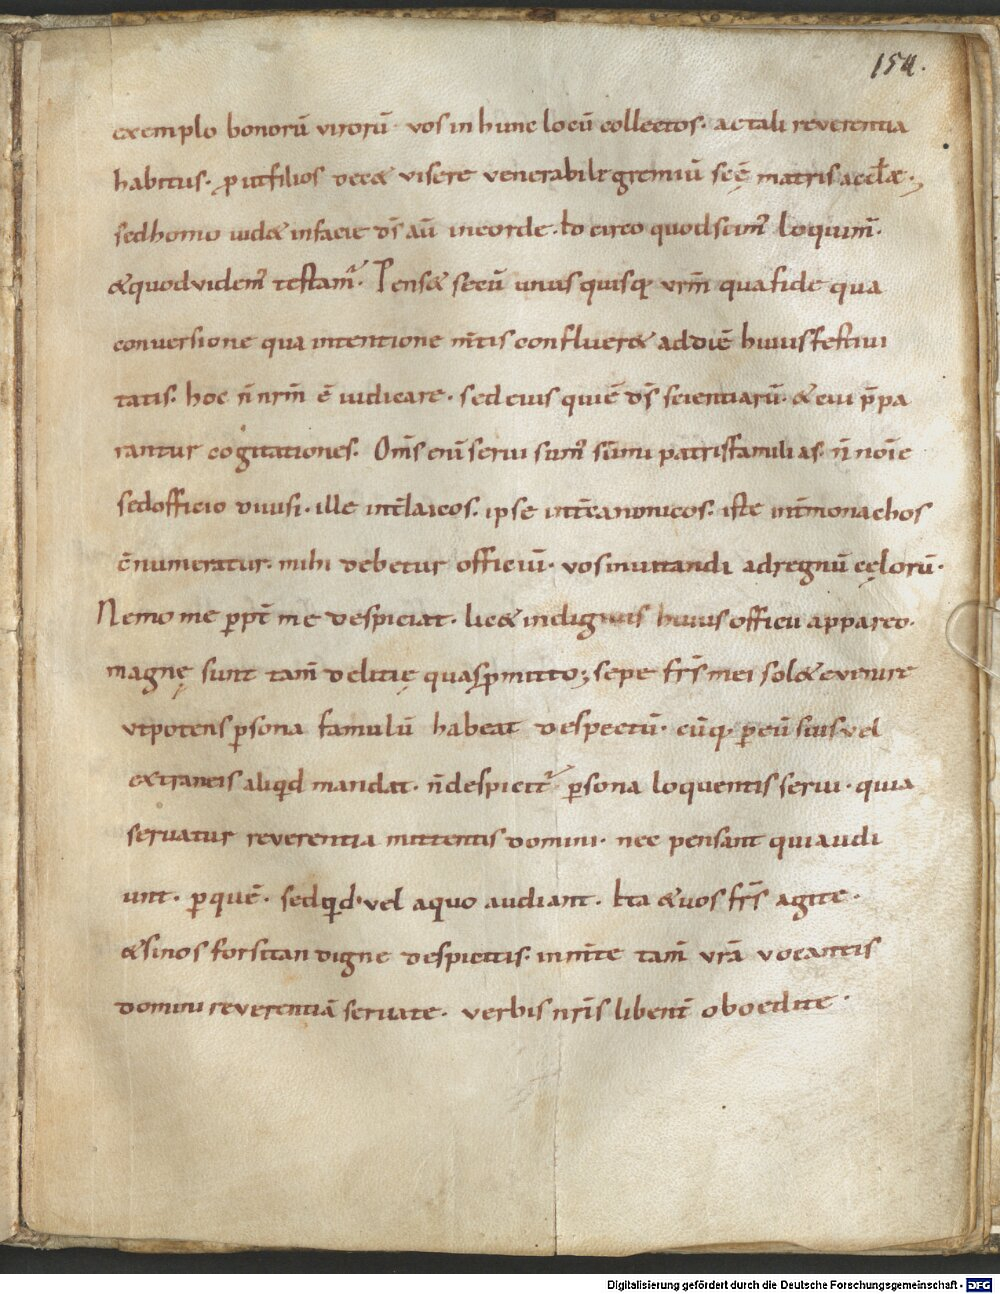 154.
exemplo bonorū virorū· vos in hunc locū collectos· ac tali reverentia
habitus· prout filios decet visere venerabile gremiū scę matris aeccl̄ae·,
sed homo videt in facie ds̄ aū in corde· Id circo quod scim' loquim̄·
&quod videm' testam̄· Penset secū unus quisq; vrm̄ qua fide qua
conversione qua intentione m̄tis confluxeret ad diē huius festivi
tatis· hoc n̄ nrm̄ ē iudicare· sed eius qui ē ds̄ scientiarū· & cui p̄pa
rantur cogitationes· Oms̄ enī servi sum' summi patris familias· n̄ noīe
sed officio divisi· ille int̄ laicos· ipse int̄ canonicos· iste int̄ monachos
ēnumeratur· mihi debetur officiū· vos invitandi ad regnū cęlorū·
Nemo me p̱pt̄ me despiciat· licet indignus huius officii appareo·
magnę sunt tam̄ delitię quas p̱mitto; sepe frs̄ mei solet evenire
ut potens p̱sona famulū habeat despectū· cūq· p̱ eū suis vel
extraneis aliqd mandat· n̄ despicit̄ p̱sona loquentis servi· quia
servatur reverentia mittentis domini· nec pensant qui audi
unt· p̱ quē· sed qd· vel a quo audiant· Ita & vos frs̄ agite·
& si nos forsitan digne despicitis· in m̄te tam̄ vrā vocantis
domini reverentiā servate· verbis nrīs libent̄ oboedite·
Digitalisierung gefördert durch die Deutsche Forschungsgemeinschaft - DFG